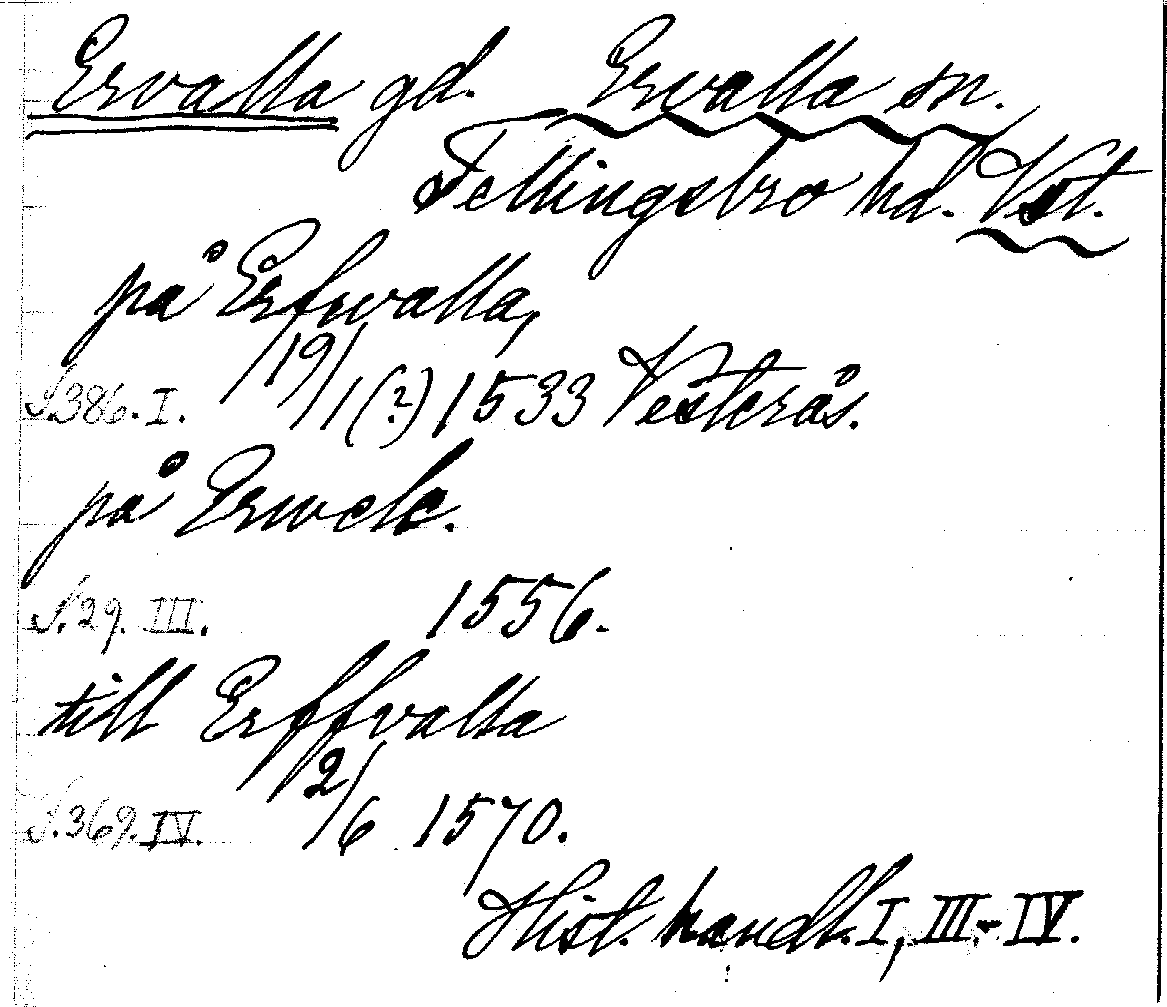 Ervalla gd. Ervalla sn.
Fellingsbro hd. Vst.
på Erfwalla,
S. 386. I. 19/1 (?) 1533 Vesterås.
på Erwele.
S. 29. III. 1556.
till Erffvalla
S. 369. IV. 2/6 1570.
Hist. handl. I, III-IV.